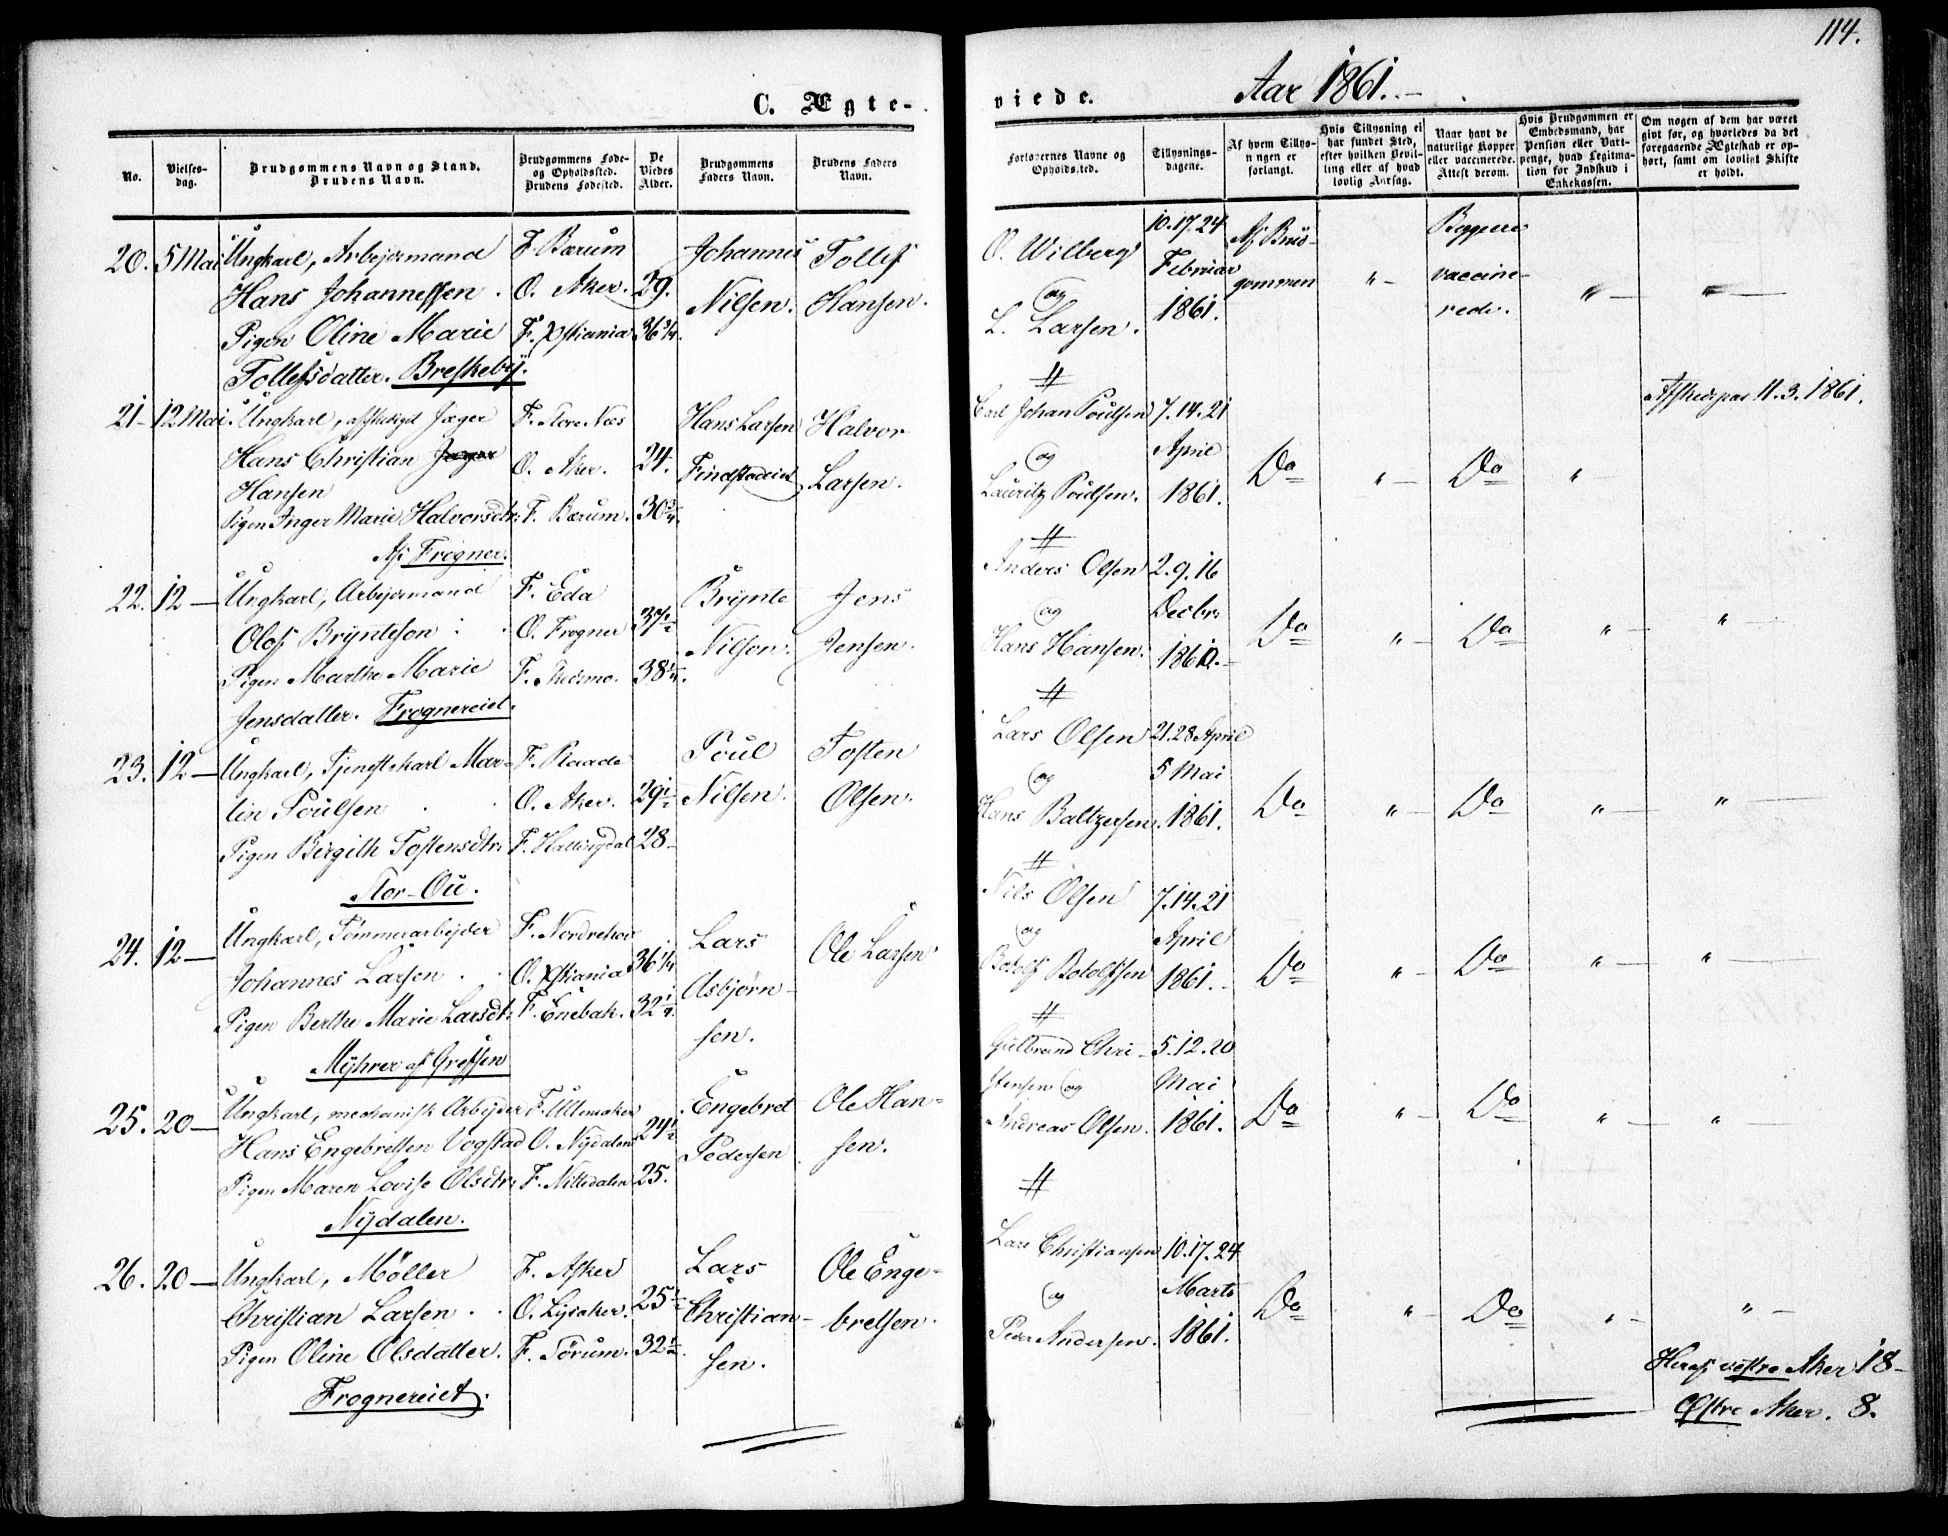 114.
C. Ægte-
viede.
Aar 1861.
No.
Vielses-
dag.
Brudgommens Navn og Stand.
Brudens Navn.
Brudgommens Føde-
og Opholdssted.
Brudens Fødested.
De
Viedes
Alder.
Brudgommens
Faders Navn.
Brudens Faders
Navn.
Forlovernes Navne og
Opholdssted.
Tillysnings-
dagene.
Af hvem Tillys-
ningen er
forlangt.
Hvis Tillysning ei
har fundet Sted,
efter hvilken Bevil-
ling eller af hvad
lovlig Aarsag.
Naar havt de
naturlige Kopper
eller vaccinerede.
Attest derom.
Hvis Brudgommen er
Embedsmand, har
Pension eller Vart-
penge, hvad Legitima-
tion for Indskud i
Enkekassen.
Om nogen af dem har været
givt før, og hvorledes da det
foregaaende Ægteskab er op-
hørt, samt om lovligt Skifte
er holdt.
20. 5 Mai Ungkarl, Arbejdsmand
Hans Johannessen.
Pigen Oline Marie
Tollefsdatter. Breskeby.
F. Bærum
O. Aker. 29.
F. Xstiania 36 3/4.
Johannes
Nilsen.
Tollef
Hansen.
O. Wilberg
og
L. Larsen.
10. 17. 24
Februar
1861.
Af Brud-
gommen
" -
Begge
vaccine-
rede.
" -
" -
21 - 12 Mai. Ungkarl, afskediget Jæger
Hans Christian Jæger
Hansen
Pigen Inger Marie Halvorsdtr:
Af Frogner.
F. Store Næs
O. Aker. 24.
F. Bærum. 30 3/4.
Hans Larsen
Findstadeiet
Halvor
Larsen.
Carl Johan Poulsen
og
Lauritz Poulsen.
7. 14. 21
April
1861.
Do
" -
Do
" -
Afskedspas 11. 3. 1861.
22. 12 - Ungkarl, Arbejdsmand
Olof Brynteson
Pigen Marthe Marie
Jensdatter. Frognereiet.
F. Eda
O. Frogner 37 1/2
F. Thedemo. 38 1/4.
Brynte
Nilson.
Jens
Jensen.
Anders Olsen
og
Hans Hansen.
2. 9. 16
Decbr.
1860.
Do
" -
Do
" -
" -
23. 12 - Ungkarl, Tjenestekarl Mar-
tin Poulsen
Pigen Birgith Tostensdtr:
Stor-Ou.
F. Raade
O. Aker. 29 1/2
F. Hallingdal 28 -
Poul
Nilsen.
Tosten
Olsen.
Lars Olsen
og
Hans Baltzersen.
21. 28 April
5 Mai
1861.
Do
" -
Do
" -
" -
24. 12 - Ungkarl, Tømmerarbejder
Johannes Larsen
Pigen Berthe Marie Larsdtr:
Myhrer af Grefsen
F. Nordrehov
O. Xstiania 36 1/4
F. Enebak. 32 1/4.
Lars
Asbjørn-
sen.
Ole Larsen
Nils Olsen
og
Botolf Botolfsen
7. 14. 21
April
1861.
Do
" -
Do
" -
" -
25. 20 - Ungkarl, mechanisk Arbejder
Hans Engebretsen Vogstad
Pigen Maren Lovise Olsdtr:
Nydalen.
F. Ullensaker
O. Nydalen 24 1/2
F. Nittedalen 25.
Engebret
Pedersen
Ole Han-
sen.
Gulbrand Chri-
stensen og
Andreas Olsen.
5. 12. 20
Mai
1861.
Do
" -
Do
" -
"
26. 20 - Ungkarl, Møller
Christian Larsen
Pigen Oline Olsdatter.
Frognereiet.
F. Asker
O. Lysaker. 25 1/2
F. Sørum. 32 1/2.
Lars
Christian-
sen.
Ole Enge-
bretsen.
Lars Christiansen
og
Peder Andersen.
10. 17. 24
Marts
1861.
Do
" -
Do
" -
" -
Heraf vestre Aker 18 -
Østre Aker. 8.